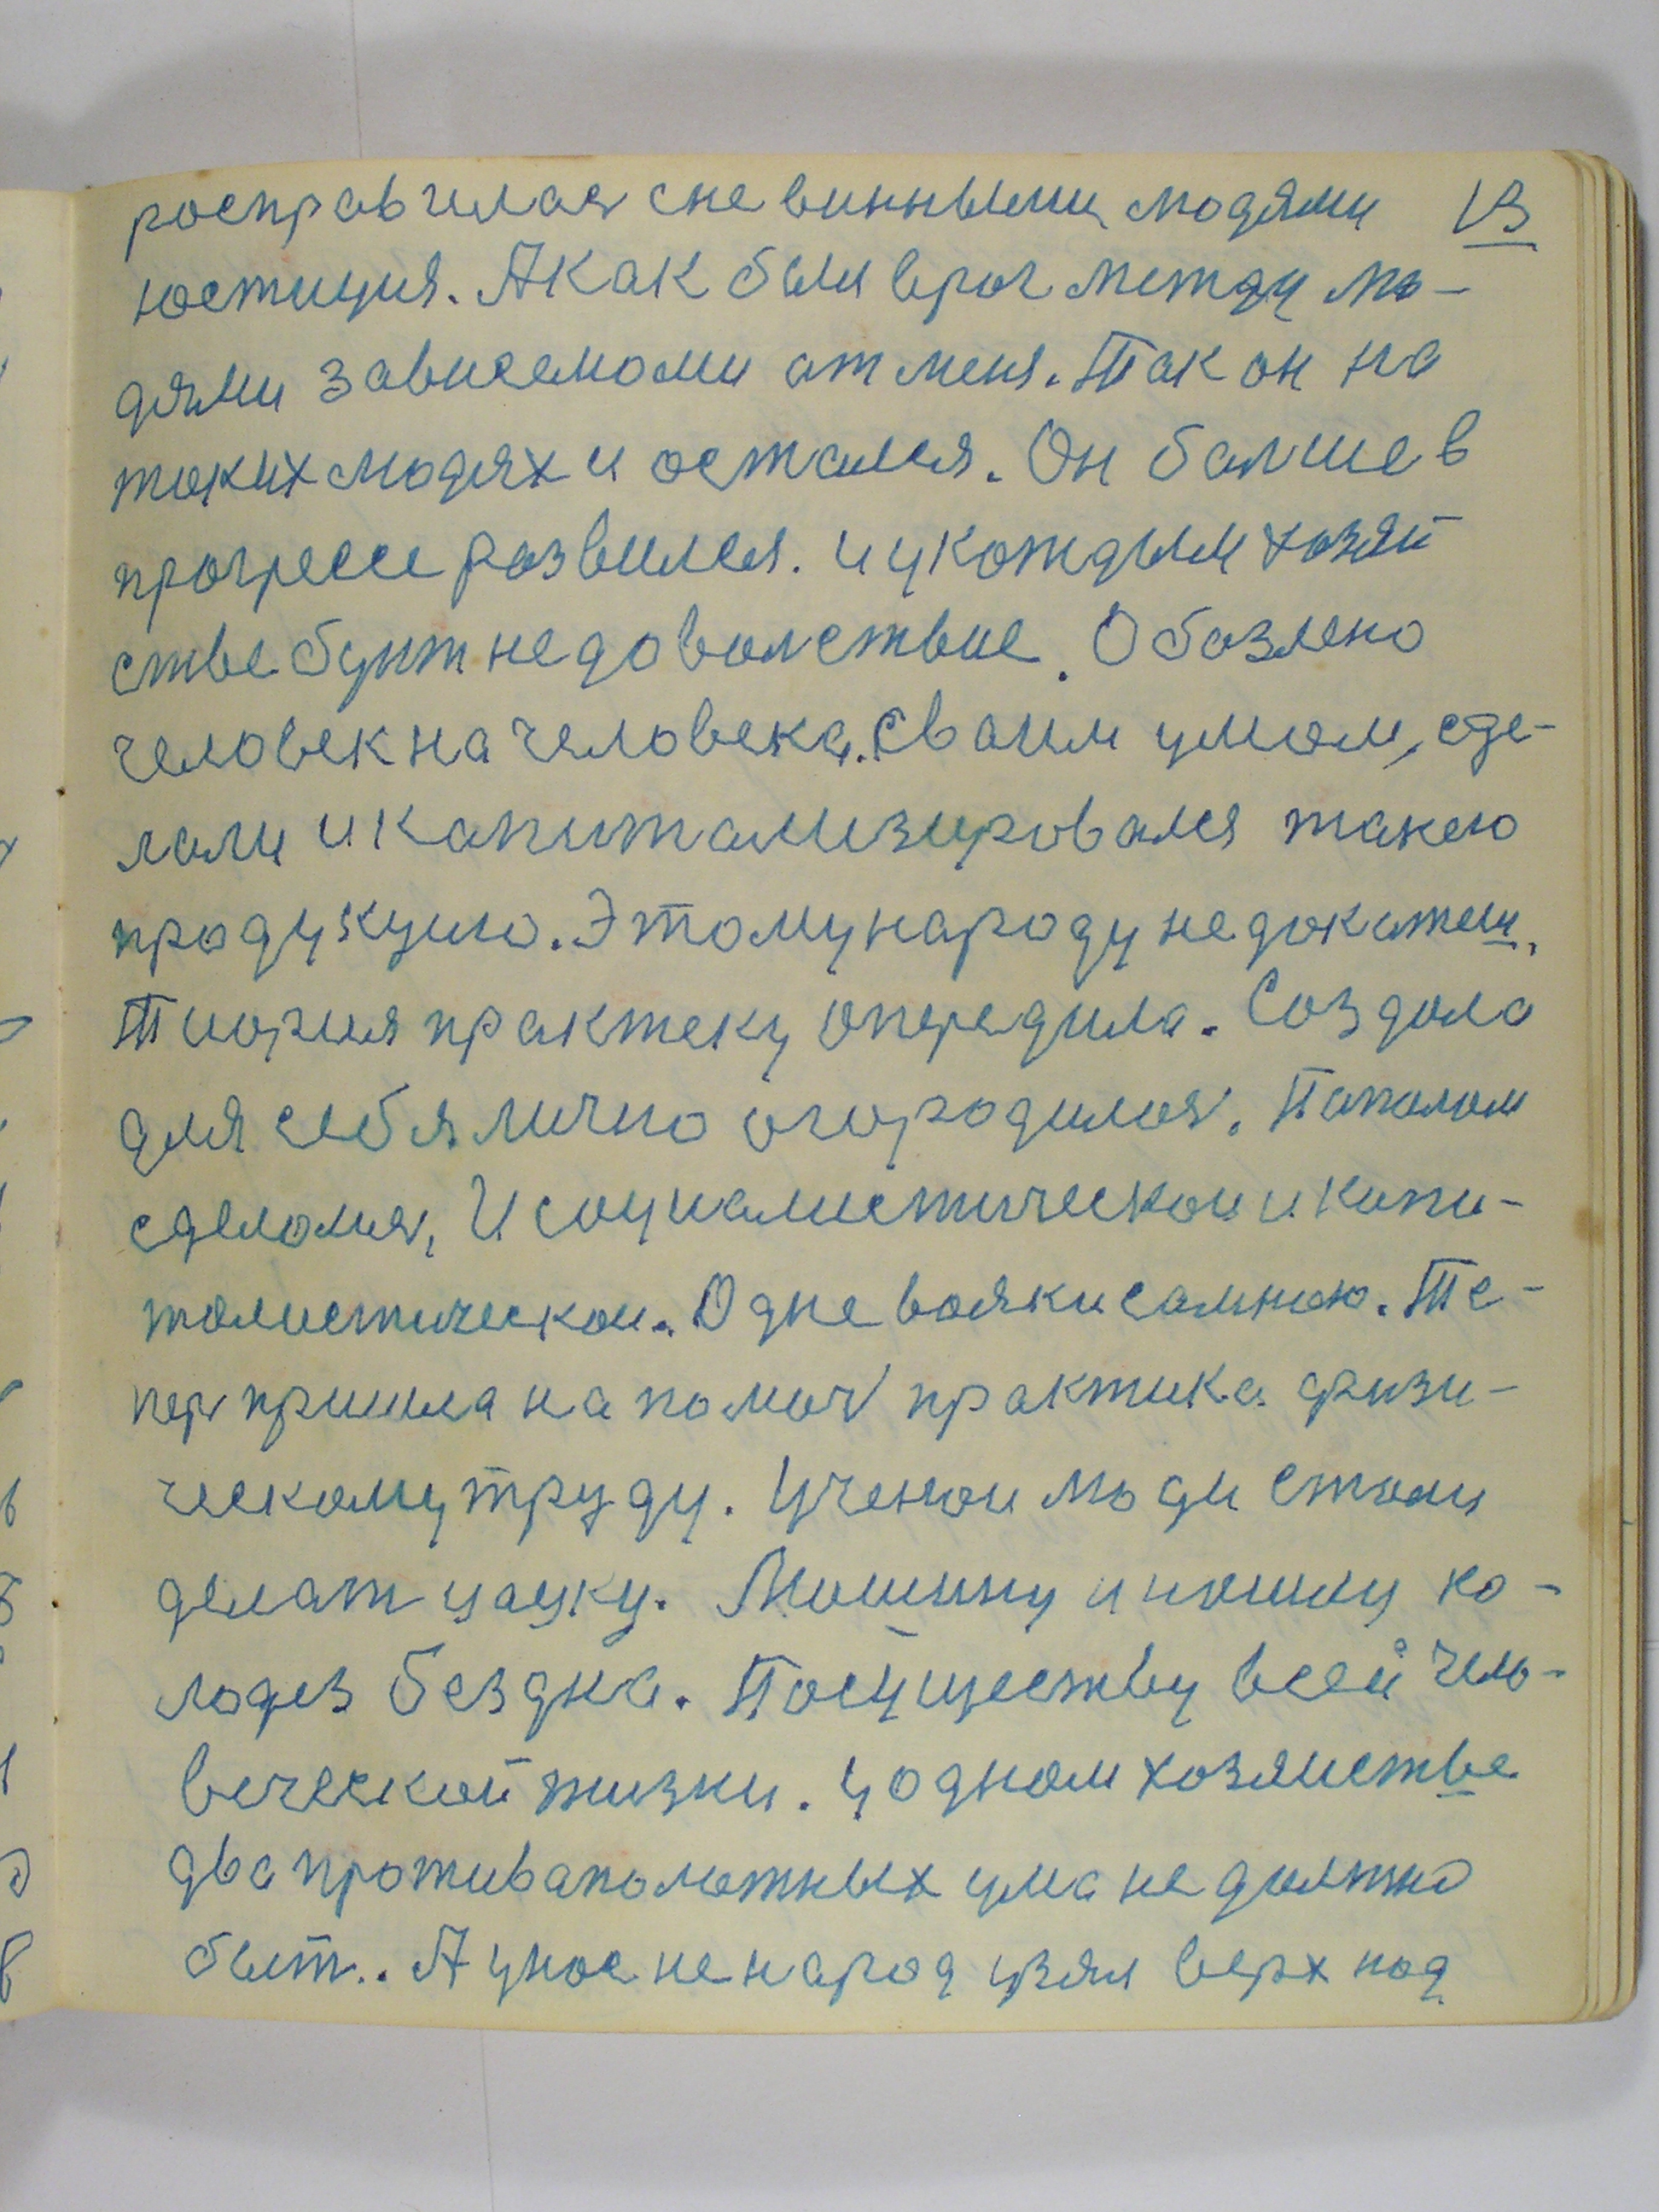 росправилася сневинными людями 13
юстиция. Акак был враг между лю-
дями зависемоми от меня. Так он на
таких людях и остался. Он балше в
прогресе развился. и укождым хозяй
стве бунт недоволствие. Обозлено
человек на человека. Сваим умом, сде-
лали и капитализировался такою
продукцию. Этому народу недокажеш.
Тиория практеку опередила. Создала
для себя лично огородилоя. Паполам
сделолися, И социалистическои и капи-
толистическои. Одне вояки самною. Те-
пер пришла на помоч практика физи-
ческому труду. Ученои люди стали
делат науку. Машину и пошлы ко-
лодез без дна. Посуществу всей чело-
веческой жизни. у одном хозяистве
два противаположных ума не должно
быт.. А унас не народ узял верх над